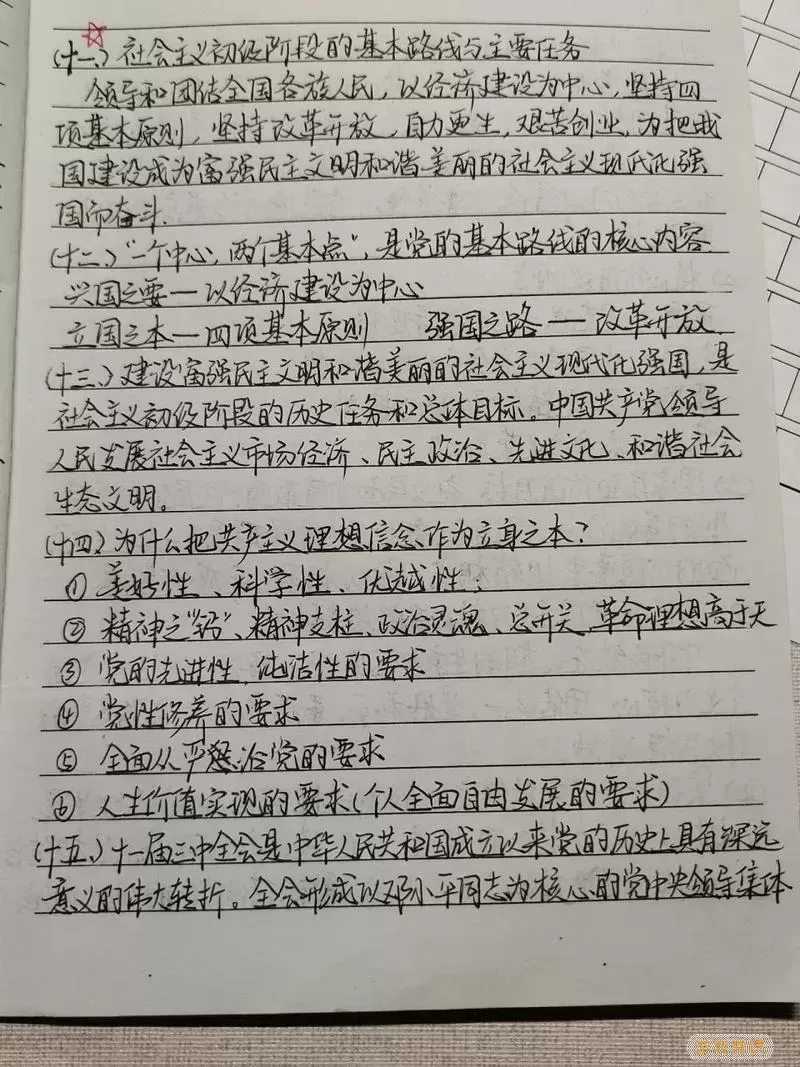 (十一、)社会主义初级阶段的基本路线与主要任务
领导和团结全国各族人民，以经济建设为中心，坚持四
项基本原则，坚持改革开放，自力更生，艰苦创业，为把我
国建设成为富强民主文明和谐美丽的社会主义现代化强
国而奋斗.
(十二、)“一个中心，两个基本点”，是党的基本路线的核心内容.
兴国之要—以经济建设为中心
立国之本—四项基本原则 强国之路—改革开放.
(十三、)建设富强民主文明和谐美丽的社会主义现代化强国，是
社会主义初级阶段的历史任务和总体目标。中国共产党领导
人民发展社会主义市场经济、民主政治、先进文化、和谐社会
生态文明。
(十四)为什么把共产主义理想信念作为立身之本？
①美好性、科学性、优越性；
②精神之“钙”、精神支柱、政治灵魂、总开关、革命理想高于天
③党的先进性、纯洁性的要求
④党性修养的要求
⑤全面从严治党的要求
⑥人生价值实现的要求(个人全面自由发展的要求)
(十五、)十一届三中全会是中华人民共和国成立以来党的历史上具有深远
意义的伟大转折。全会形成以邓小平同志为核心的党中央领导集体